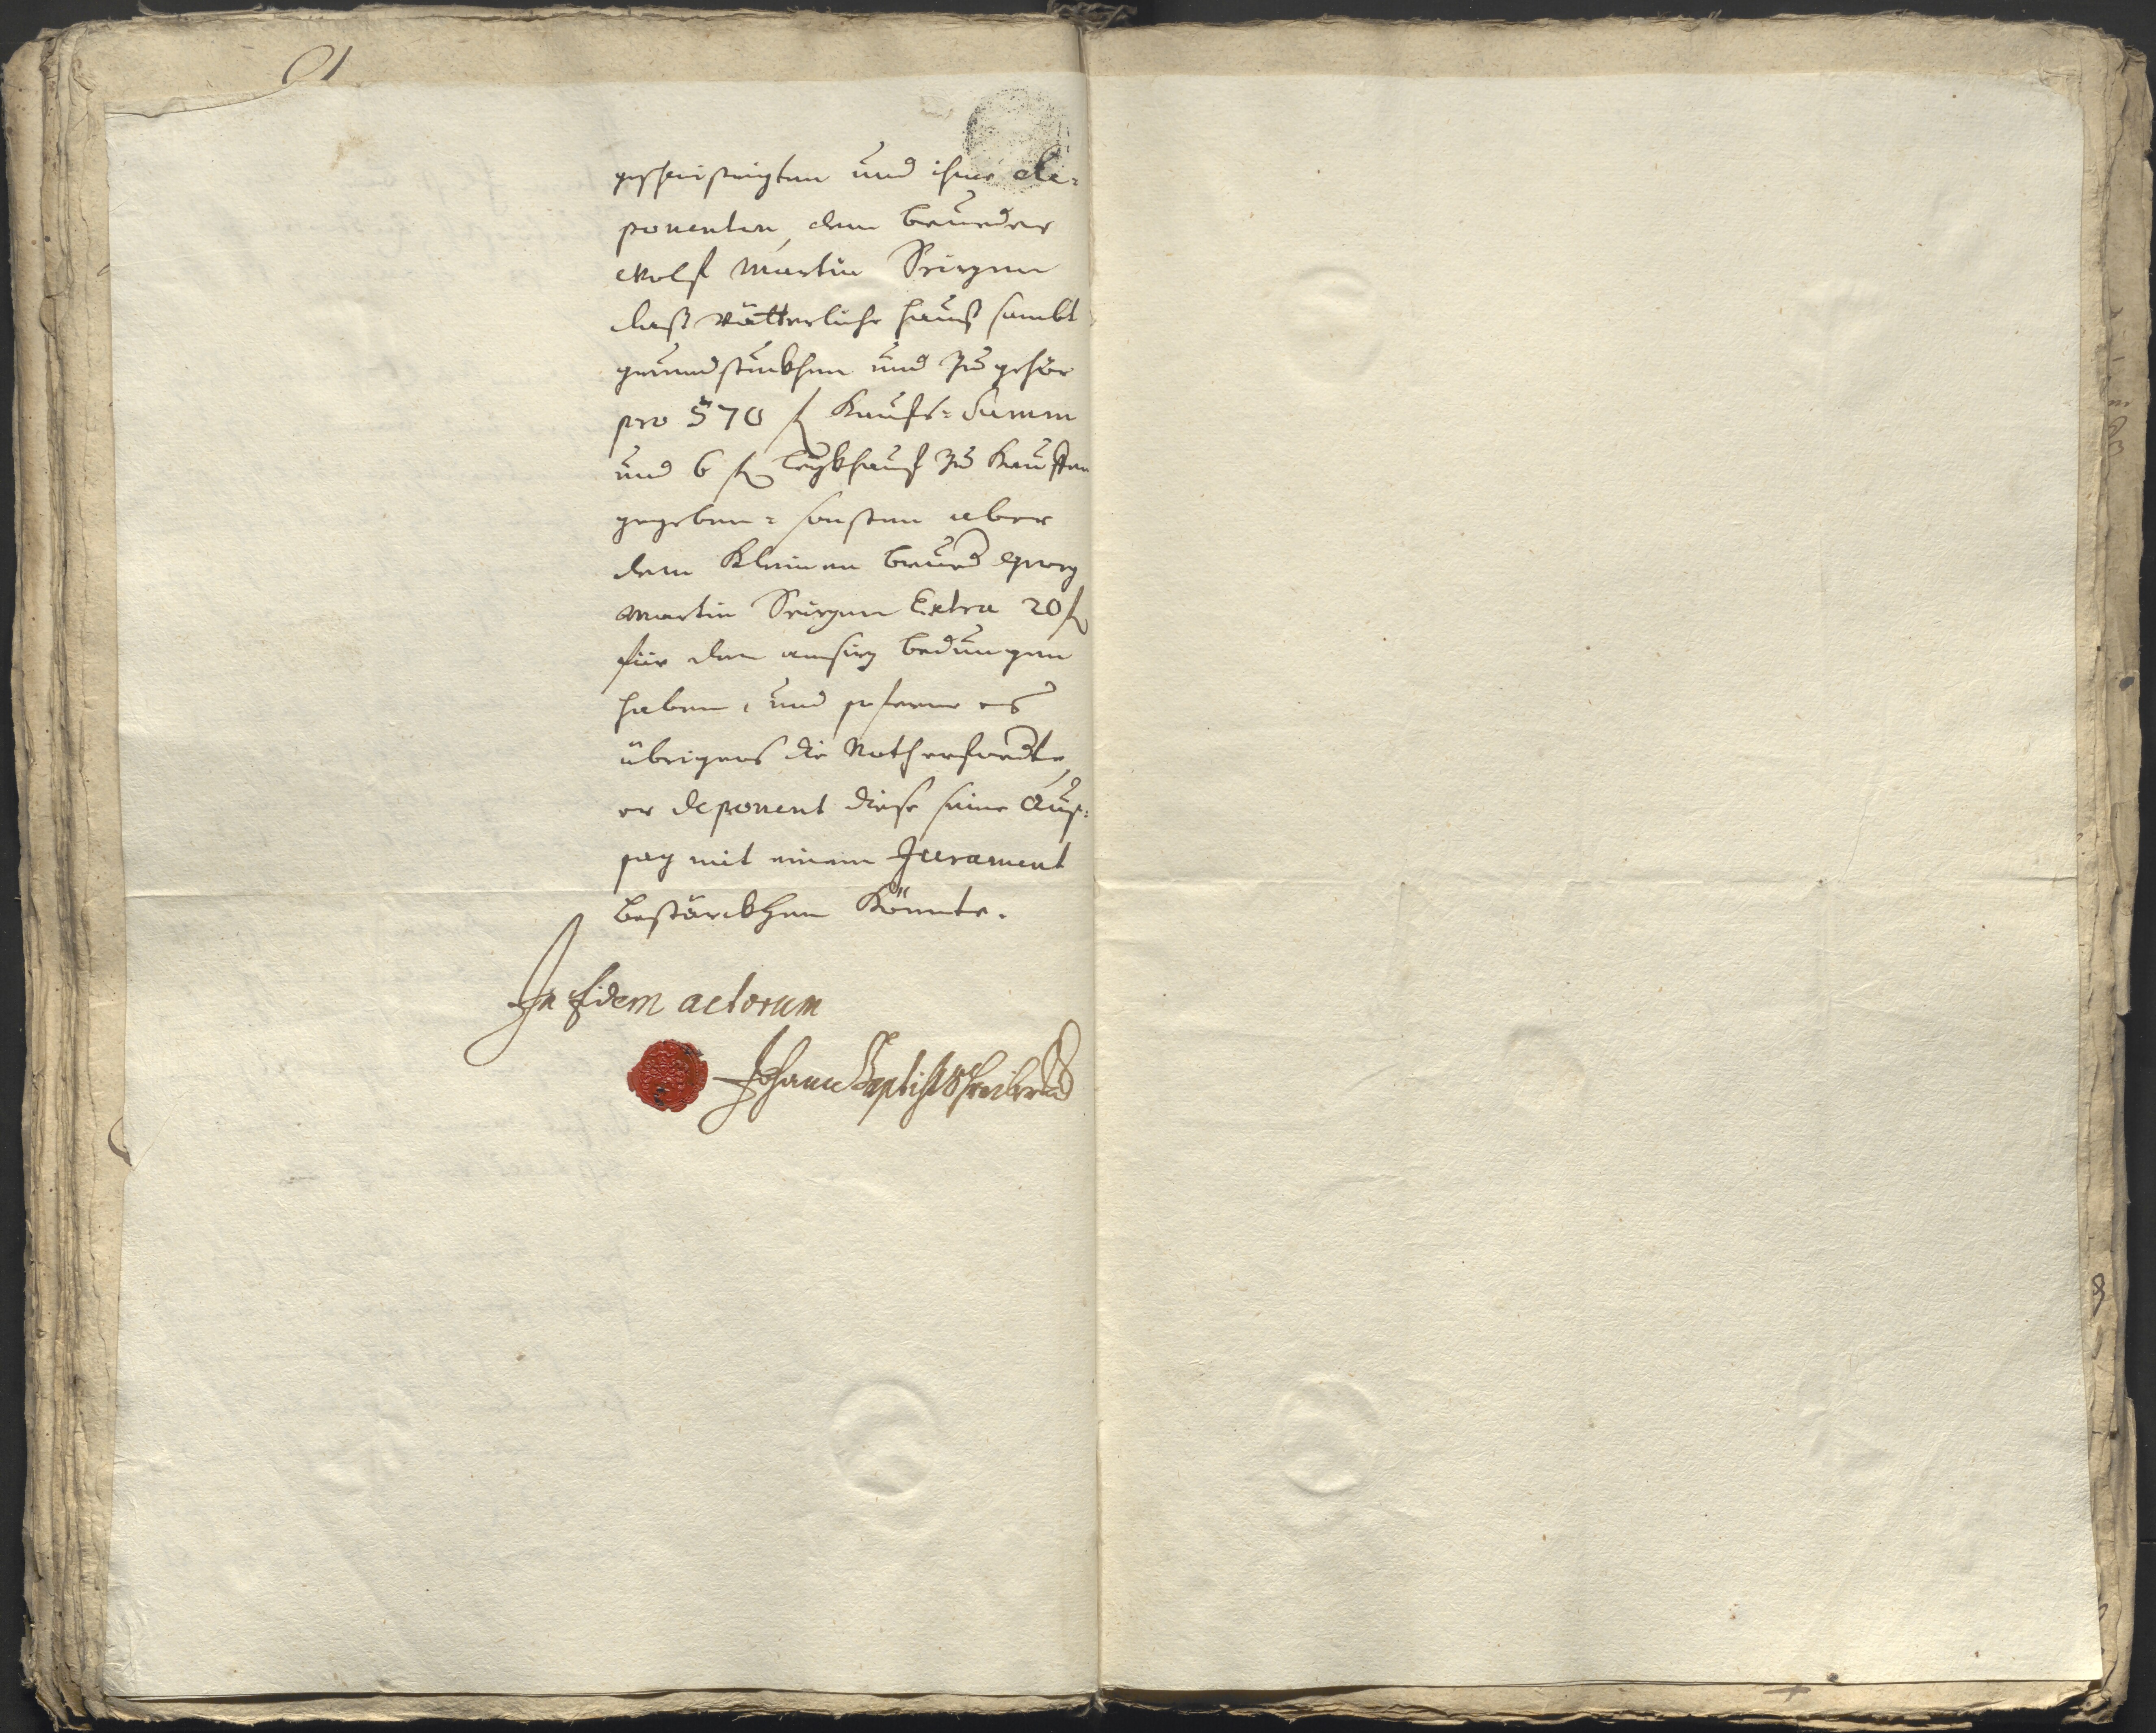 geschwistrigten und ihme de-
ponenten, dem brueder
Wolf Martin
daß vätterliche hauß sambt
grundstuckhen und Zugehör
pro 570 f Kaufs-Summ
und 6 f Leykhauf Zu Kauffen
gegeben- sonsten aber
dem Kleinen brued Georg
Martin Extra 20 f
für den ansiz bedungen
haben, und soferne es
übrigens die Noth erfordte,
er deponent diese seine Auß-
sag mit einem Jurament
bestärckhen Könnte.
In Fidem actorum
Johann Baptist Schreiber